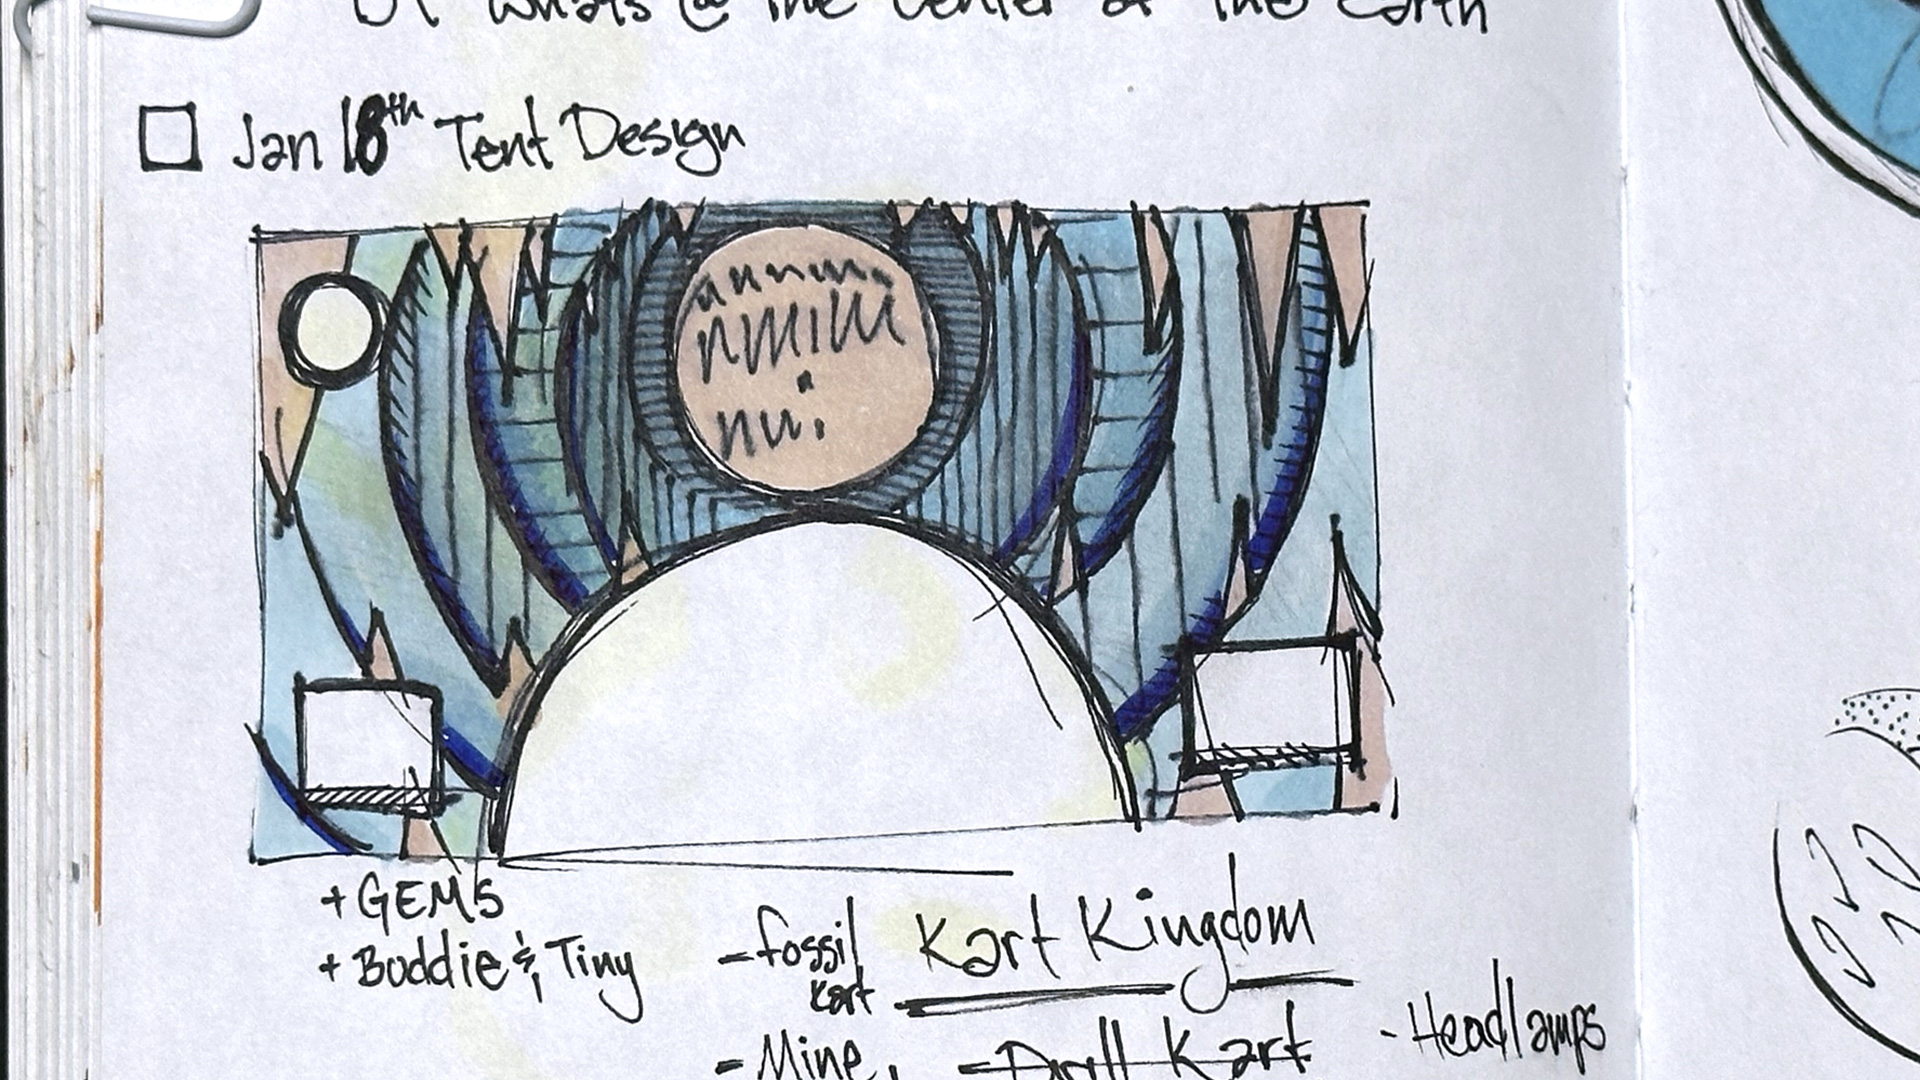 Whats @ The Center of The Earth
Jan 18th Tent Design
+ GEMS
+ Buddie & Tiny
- Fossil Kart
Kart Kingdom
- Mine
- Drill Kart
- Headlamps